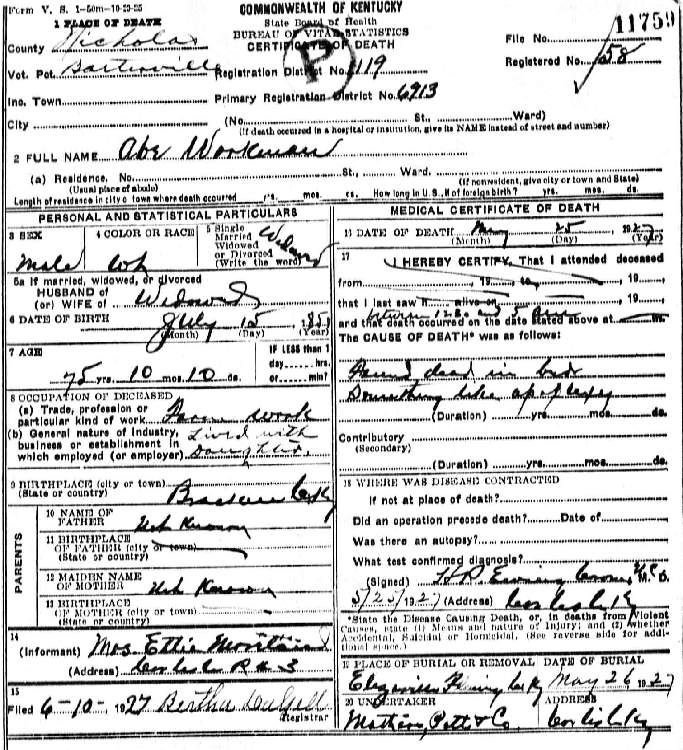 Form V. S. 1-50m-10-23-25
COMMONWEALTH OF KENTUCKY
State Board of Health
BUREAU OF VITAL STATISTICS
CERTIFICATE OF DEATH
11759
File No.
Registered No. 58
1 PLACE OF DEATH
County Nicholas
Vot. Pct. Bartersville
Registration District No. 119
Inc. Town
Primary Registration District No. 6913
P
City (No. St., Ward)
(If death occurred in a hospital or institution, give its NAME instead of street and number)
2 FULL NAME Abe Workman
(a) Residence. No. St., Ward.
(Usual place of abode) (If nonresident, give city or town and State)
Length of residence in city or town where death occurred yrs. mos. ds. How long in U. S., if of foreign birth? yrs. mos. ds.
PERSONAL AND STATISTICAL PARTICULARS
3 SEX
Male
4 COLOR OR RACE
Wh
5 Single
Married
Widowed
or Divorced
(Write the word)
Widowed
5a If married, widowed, or divorced
HUSBAND OF
(or) WIFE of Widowed
6 DATE OF BIRTH July 15 1851
(Month) (Day) (Year)
7 AGE
75 yrs. 10 mos. 10 ds.
IF LESS than 1
day hrs.
or min?
8 OCCUPATION OF DECEASED
(a) Trade, profession or
particular kind of work Farm work
(b) General nature of industry,
business or establishment in
which employed (or employer)
Lived with
Daughter.
9 BIRTHPLACE (city or town)
(State or country) Bracken Co Ky
PARENTS
10 NAME OF
FATHER Not Known
11 BIRTHPLACE
OF FATHER (city or town)
(State or country)
12 MAIDEN NAME
OF MOTHER Not Known
13 BIRTHPLACE
OF MOTHER (city or town)
(State or country)
14
(Informant) Mrs. Ettie
(Address) Carlisle R # 3
15
Filed 6-10-, 1927 Bertha
Registrar
MEDICAL CERTIFICATE OF DEATH
16 DATE OF DEATH May 25 1927
(Month) (Day) (Year)
17
I HEREBY CERTIFY, That I attended deceased
from , 19 to , 19
that I last saw h alive on , 19
between 12 and 5 am
and that death occurred on the date stated above at m.
The CAUSE OF DEATH* was as follows:
Found dead in bed
Something like apoplexy
(Duration) yrs. mos. ds.
Contributory
(Secondary)
(Duration) yrs. mos. ds.
18 WHERE WAS DISEASE CONTRACTED
If not at place of death?
Did an operation precede death? Date of
Was there an autopsy?
What test confirmed diagnosis?
(Signed) H.R. Ewing M. D.
5/25/1927 (Address) Carlisle Ky
*State the Disease Causing Death, or, in deaths from Violent
Causes, state (1) Means and nature of Injury; and (2) whether
Accidental, Suicidal or Homicidal. (See reverse side for addi-
tional space.)
19 PLACE OF BURIAL OR REMOVAL
Elizaville Fleming Co Ky
DATE OF BURIAL
May 26 1927
20 UNDERTAKER
Mathers, Pott & Co
ADDRESS
Carlisle Ky